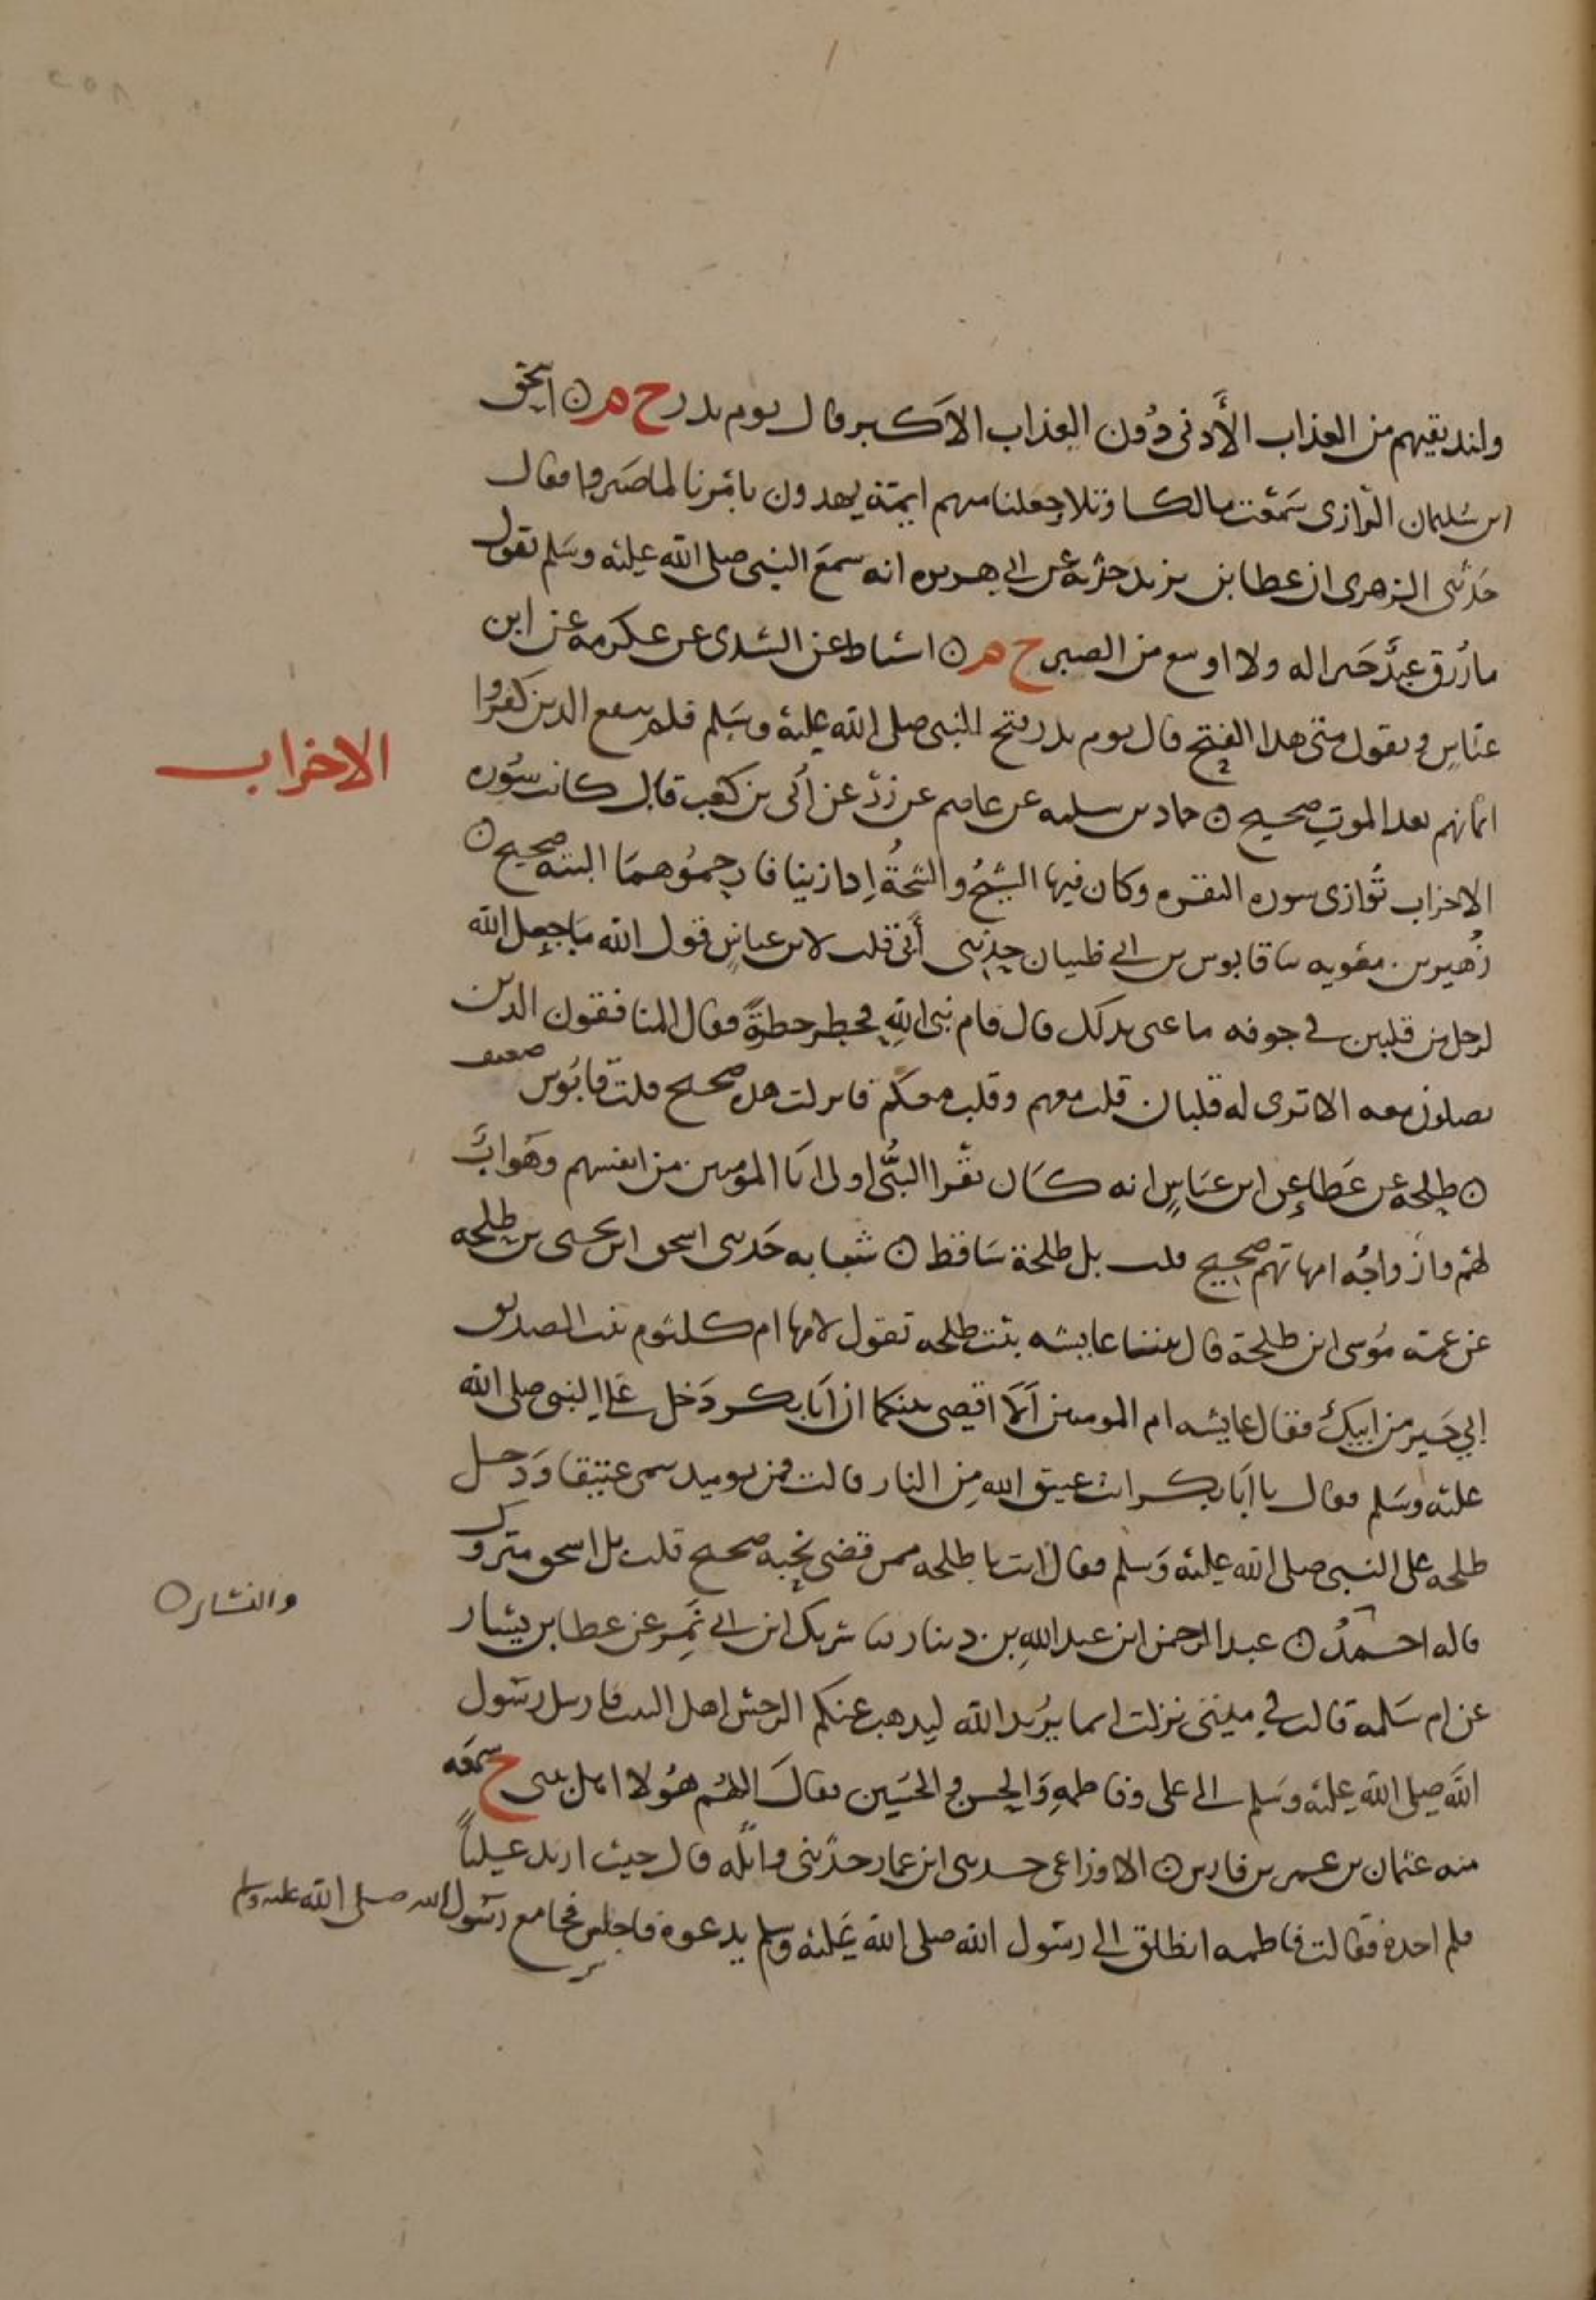 ولنديقنهم من العذاب الأدنى دُون العذاب الاكبر قال يوم بدر ح م ○ اسحق
ابن سُليمان الرازى سَمعت مالكا وتلا وجعلنا منهم ايمّة يهدون بامْرنا لما صَبروا فقال
حَدثنى الزهرى ان عطا بن يزيد حدثه عن ابى هريره انه سمعَ النبى صلى الله عليْه وسَلم يقول
ما رُزق عبدٌ خير اله ولا اوسع من الصبر ح م ○ اسباط عن السّدى عن عكرمه عن ابن
عبّاسٍ ويقول متى هذا الفتح قال يوم بدر فتح للنبى صلى الله عليه وسَلم فلم ينفع الذين كفروا
ايمانهم بعد الموتِ صحيح ○ حماد بن سلمه عن عاصم عن زرّ عن اُبى بن كعب قال كانت سُوره
الاحزاب
الاحزاب تُوازى سوره البقره وكان فيها الشيخُ والشيخةُ اِذا زنيا فارجمُوهمَا البته صحيح ○
زُهير بن معويه سا قابوس بن ابى ظبيان حدثنى أبى قلت لابن عباسٍ قول الله مَا جعل الله
لرجل من قلبين فى جوفه ما عنى بذلك قال قام نبى اللهِ فخطر خطرةً فقال المنافقون الذين
يصلون معه الا ترى له قلبان قلب معهم وقلب معكم فانزلت هذه صحيح قلت قابُوس ضعيف
○ طلحه عن عَطاءٍ عن ابن عبَاسٍ انه كَان يقْرا النبُّى اولى بَا المومنين من انفسهم وهَو ابٌ
لهُم وازواجُه امهاتهم صحيح قلت بل طلحة سَاقط ○ شبابه حَدثنى اسحق ابن يحيى بن طلحه
عن عمّه مُوسى ابن طلحة قال بينا عايشه بنت طلحه تقول لامها ام كلثوم بنت الصديق
ابي خَير من ابيكِ فقال عايشه ام المومنين اَلَا اقضى بينكما ان اَبَا بكر دَخل عَلى النبى صلى الله
عليه وسَلم فقال يا اَبَا بكر انت عتيق الله مِن النار قالت فمن يوميذ سمى عتيقا وَدخل
طلحه على النبى صلى الله عليْه وَسلم فقال انت يا طلحه ممن قضى نحْبه صحيح قلت بل اسحق متروك
قاله احمدُ ○ عبد الرحمن ابن عبد اللهِ بن دينار سا شريك ابن ابى نَمِر عن عطا بن يَسَار
عن ام سَلمه قالت في بيتى نزلت انما يرُيد الله ليذهب عنكم الرجس اهل البيت فارسل رسُول
اللهَ صلى الله عليه وسَلم الى على وفاطمه وَالحسن والحُسَين فقالَ اللهُم هوُلا اهل بيتى ح سمعَه
منه عثمان بن عمر بن فارس ○ الاوزاعى حدثنى ابن عمار حدّثنى واثله قال جيت اريد عَليّاً
فلم اجده فقالت فاطمه انطلق الى رسُول الله صلى الله عَليْه وسلم يدعوه فاجلس فجا مع رسُول الله صلى الله عليه وسلم